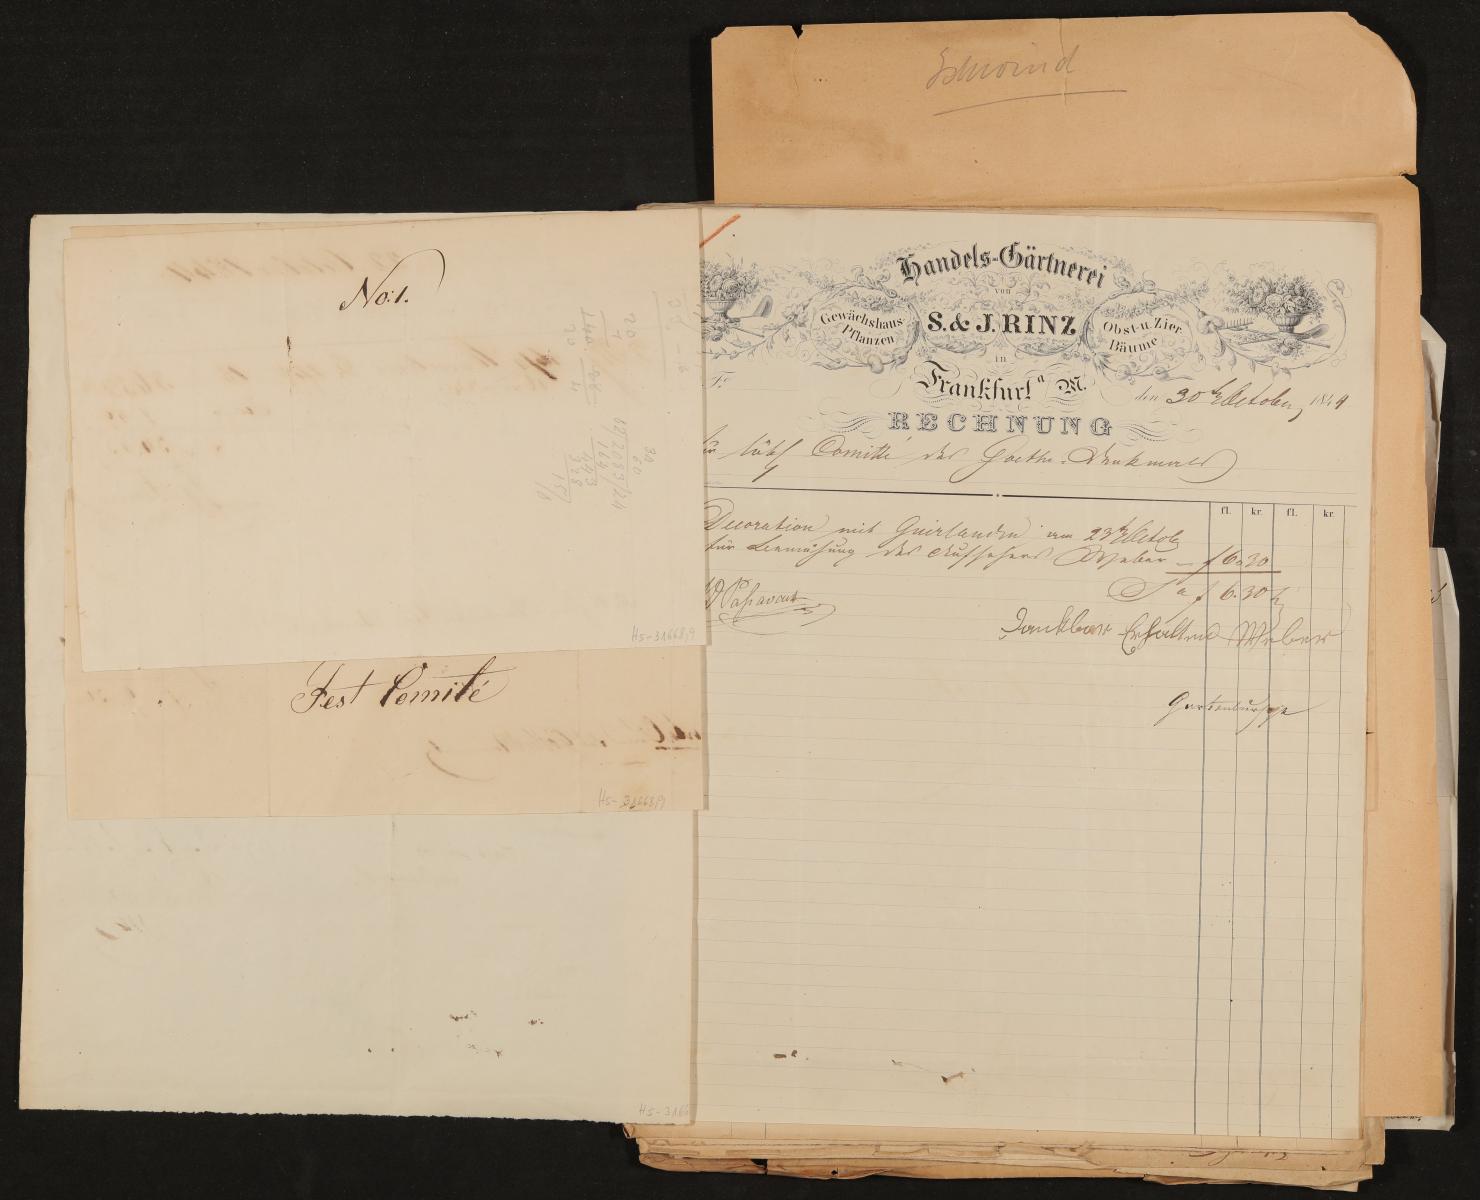 Schwind
No: 1.
Hs-31668,9
Fest Comité
Hs-31668,9
Hs-3166
Handels-Gärtnerei
von
Gewächshaus-
Pflanzen
S. & J. RINZ
Obst- u. Zier-
Bäume
in
Frankfurt a M.
Fo
den 30 October 1849
RECHNUNG
für löbl Comitté des Goethe-Denkmals
fl. kr. fl. kr.
Decoration mit Guirlanden am 23t Octob
für Bemühung des Aufsehers Weber — f 6.30
Sa f 6.30 k
Passavant
Dankbar Erhalten Weber
Gartenbursche